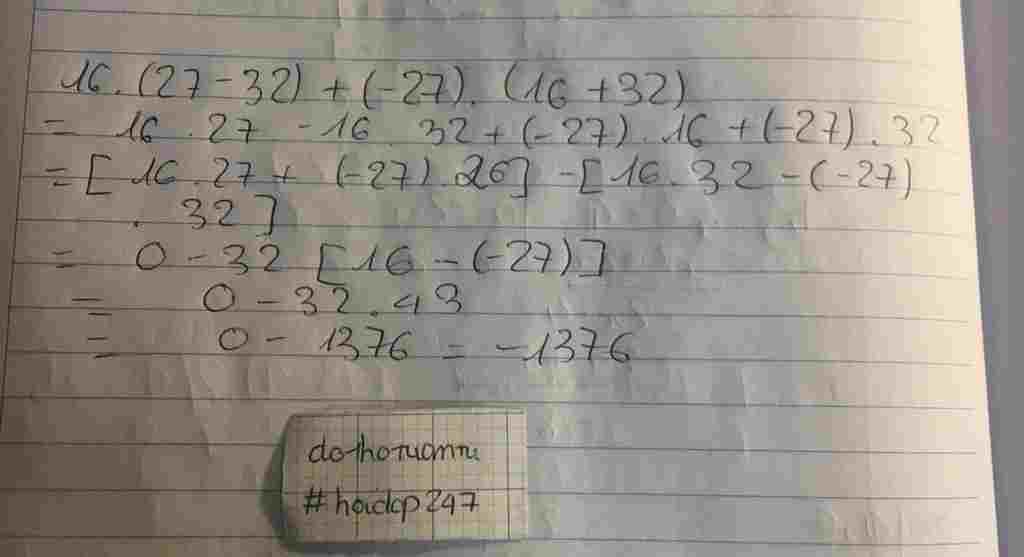 16.(27-32)+(-27).(16+32)
= 16.27 -16.32+(-27).16+(-27).32
=[16.27+(-27).26]-[16.32-(-27)
.32]
= 0-32[16-(-27)]
= 0-32.43
= 0-1376=-1376
#hoidap247